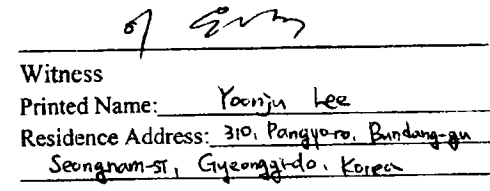 Witness
Printed Name: Yoonju Lee
Residence Address: 310, Pangyo-ro, Bundang-gu
Seongnam-si, Gyeonggi-do, Korea